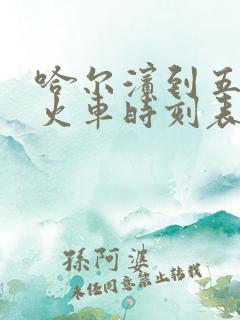 哈尔滨到五
火车时刻表
孫阿婆
未经同意禁止转载